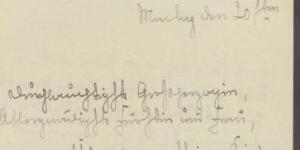 Montag den 20sten
Durchlauchtigste Großherzogin,
Allergnädigste Fürstin und Frau,